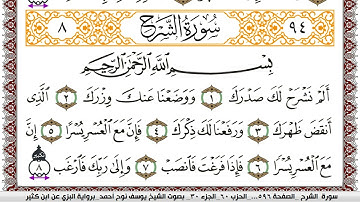 ٩٤ سُورَةُ الشَّرْحِ ٨
بِسْمِ اللَّهِ الرَّحْمَٰنِ الرَّحِيمِ
أَلَمْ نَشْرَحْ لَكَ صَدْرَكَ ١ وَوَضَعْنَا عَنكَ وِزْرَكَ ٢ الَّذِي
أَنقَضَ ظَهْرَكَ ٣ وَرَفَعْنَا لَكَ ذِكْرَكَ ٤ فَإِنَّ مَعَ الْعُسْرِ يُسْرًا ٥ إِنَّ
مَعَ الْعُسْرِ يُسْرًا ٦ فَإِذَا فَرَغْتَ فَانصَبْ ٧ وَإِلَىٰ رَبِّكَ فَارْغَب ٨
سورة الشرح _الصفحة ٥٩٦_... الحزب ٦٠_ الجزء ٣٠_ بصوت الشيخ يوسف نوح أحمد_برواية البزي عن ابن كثير